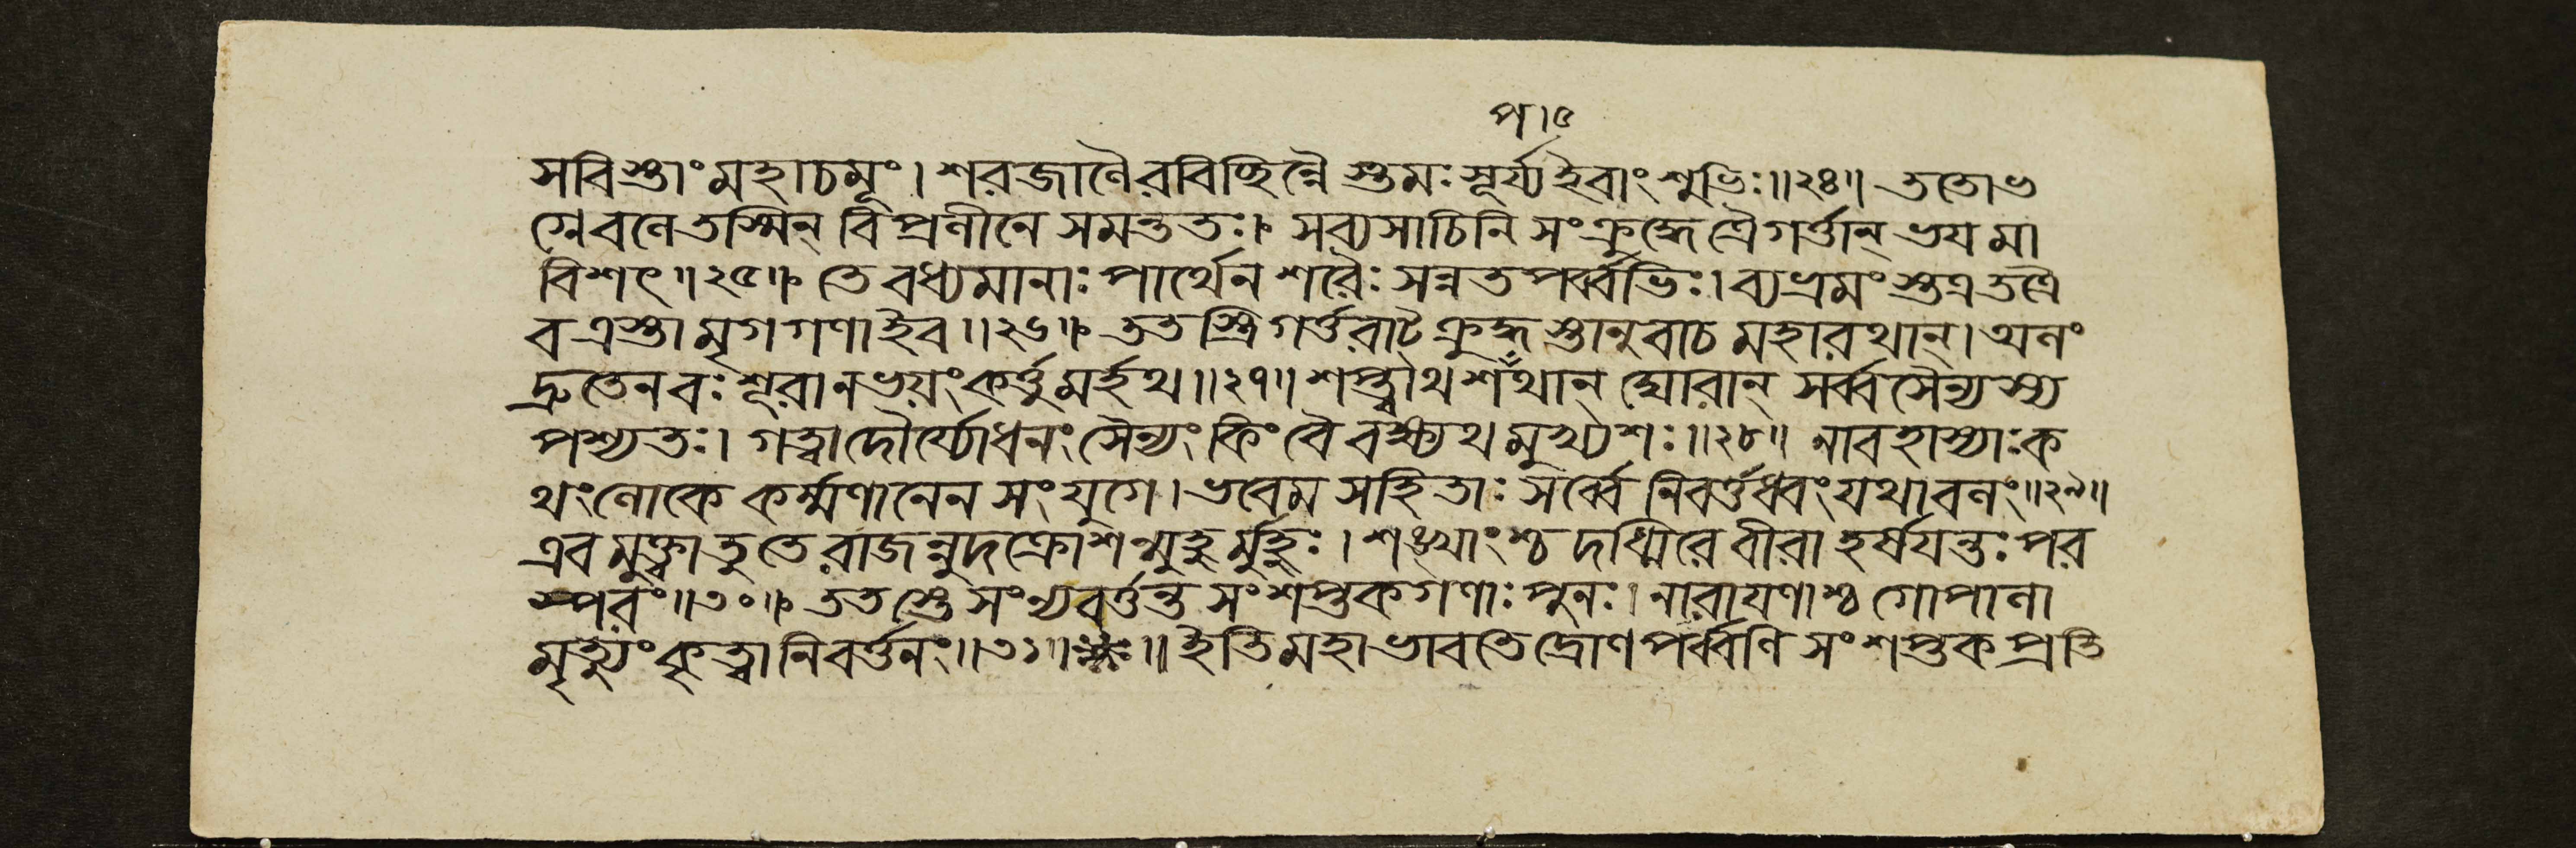 প।৫
সবিস্তাং মহাচমূং। শরজালৈরবিচ্ছিন্নৈ স্তমঃ সূর্য্য ইবাংশুভিঃ॥২৪॥ ততোভ
গ্নে বলে তস্মিন্ বিপ্রলীনে সমন্ততঃ। সব্যসাচিনি সংক্রুদ্ধে ত্রৈগর্ত্তান্ ভয়মা
বিশৎ॥২৫॥ তে বধ্যমানাঃ পার্থেন শরৈঃ সন্নতপর্ব্বভিঃ। ব্যভ্রমংস্তত্র তত্রৈ
ব ত্রস্তা মৃগগণা ইব॥২৬॥ ততস্ত্রিগর্ত্তরাট্ ক্রুদ্ধস্তানুবাচ মহারথান্। অলং
দ্রুতেন বঃ শূরা ন ভয়ং কর্ত্তুমর্হথ॥২৭॥ শপ্ত্বাথ শপথান্ ঘোরান্ সর্ব্বসৈন্যস্য
পশ্যতঃ। গত্বা দৌর্য্যোধনং সৈন্যং কিং বৈ বক্ষ্যথ মুখ্যশঃ॥২৮॥ নাবহাস্যাঃ ক
থং লোকে কর্ম্মণানেন সংযুগে। ভবেম সহিতাঃ সর্ব্বে নিবর্ত্তধ্বং যথাবলং॥২৯॥
এবমুক্ত্বা তু তে রাজন্নুদক্রোশন্মুহুর্মুহুঃ। শঙ্খাংশ্চ দধ্মিরে বীরা হর্ষয়ন্তঃ পর
স্পরং॥৩০॥ ততস্তে সংন্যবর্ত্তন্ত সংশপ্তকগণাঃ পুনঃ। নারায়ণাশ্চ গোপালা
মৃত্যুং কৃত্বা নিবর্ত্তনং॥৩১॥ ॥ ইতি মহাভারতে দ্রোণপর্ব্বণি সংশপ্তক প্রতি